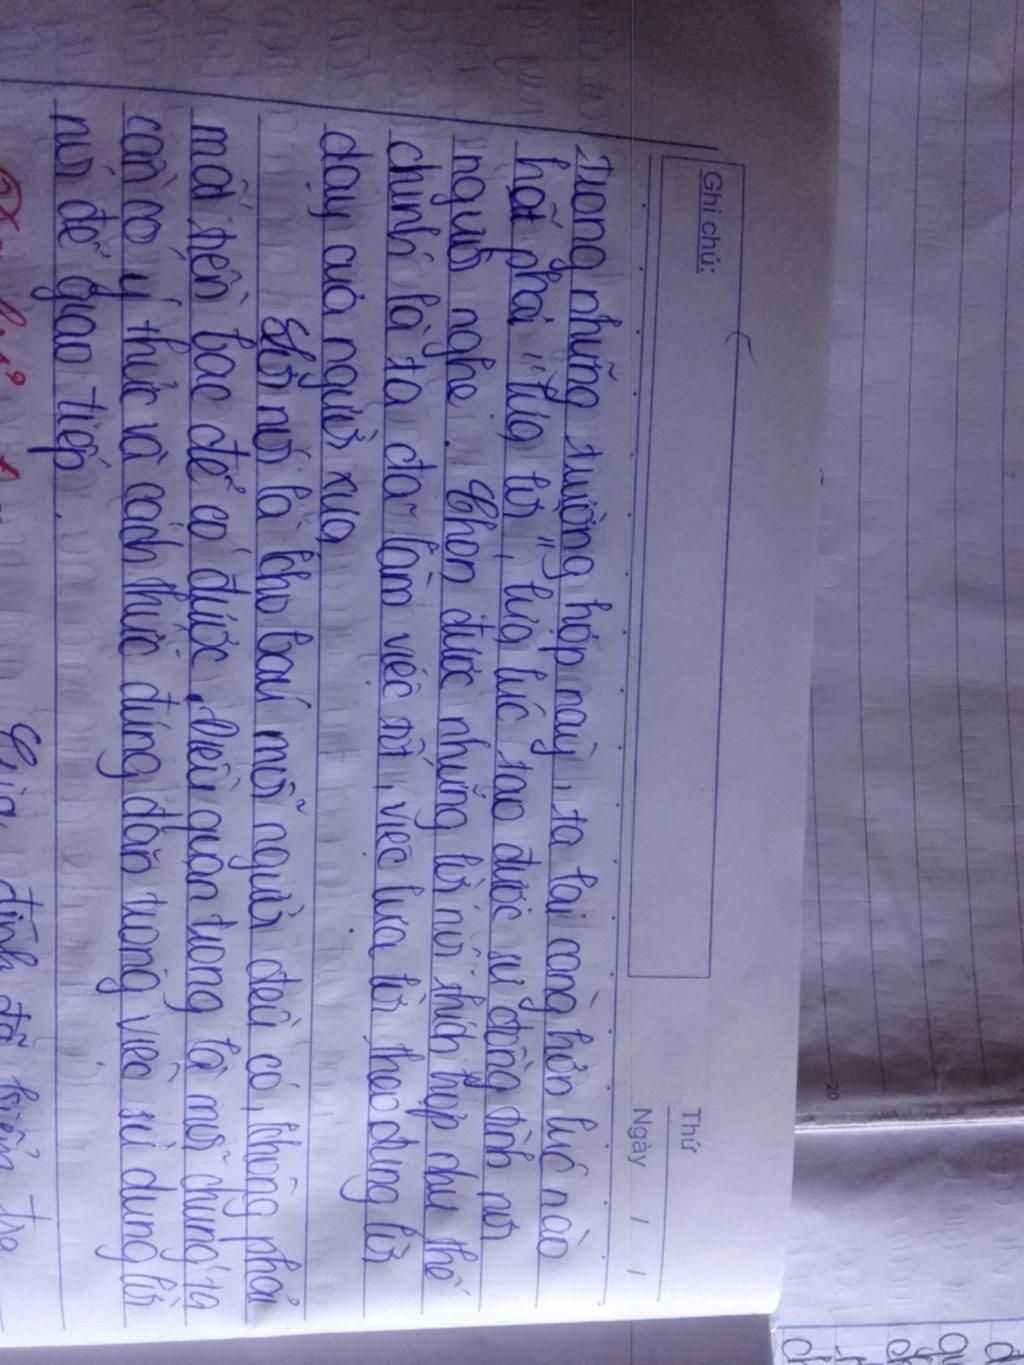 Ghi chú:
Thứ
Ngày / /
Trong những trường hợp này, ta lại càng hơn lúc nào
hết phải "lựa lời", lựa lúc tạo được sự đồng tình nơi
người nghe. Chọn được những lời nói thích hợp như thế
chính là ta đã làm việc tốt, việc lựa lời theo đúng lời
dạy của người xưa
Lời nói là kho báu mỗi người đều có, không phải
mất tiền bạc để có được, điều quan trọng là mỗi chúng ta
cần có ý thức và cách thức đúng đắn trong việc sử dụng lời
nói để giao tiếp.
Gia đình đã kiểm tra
20